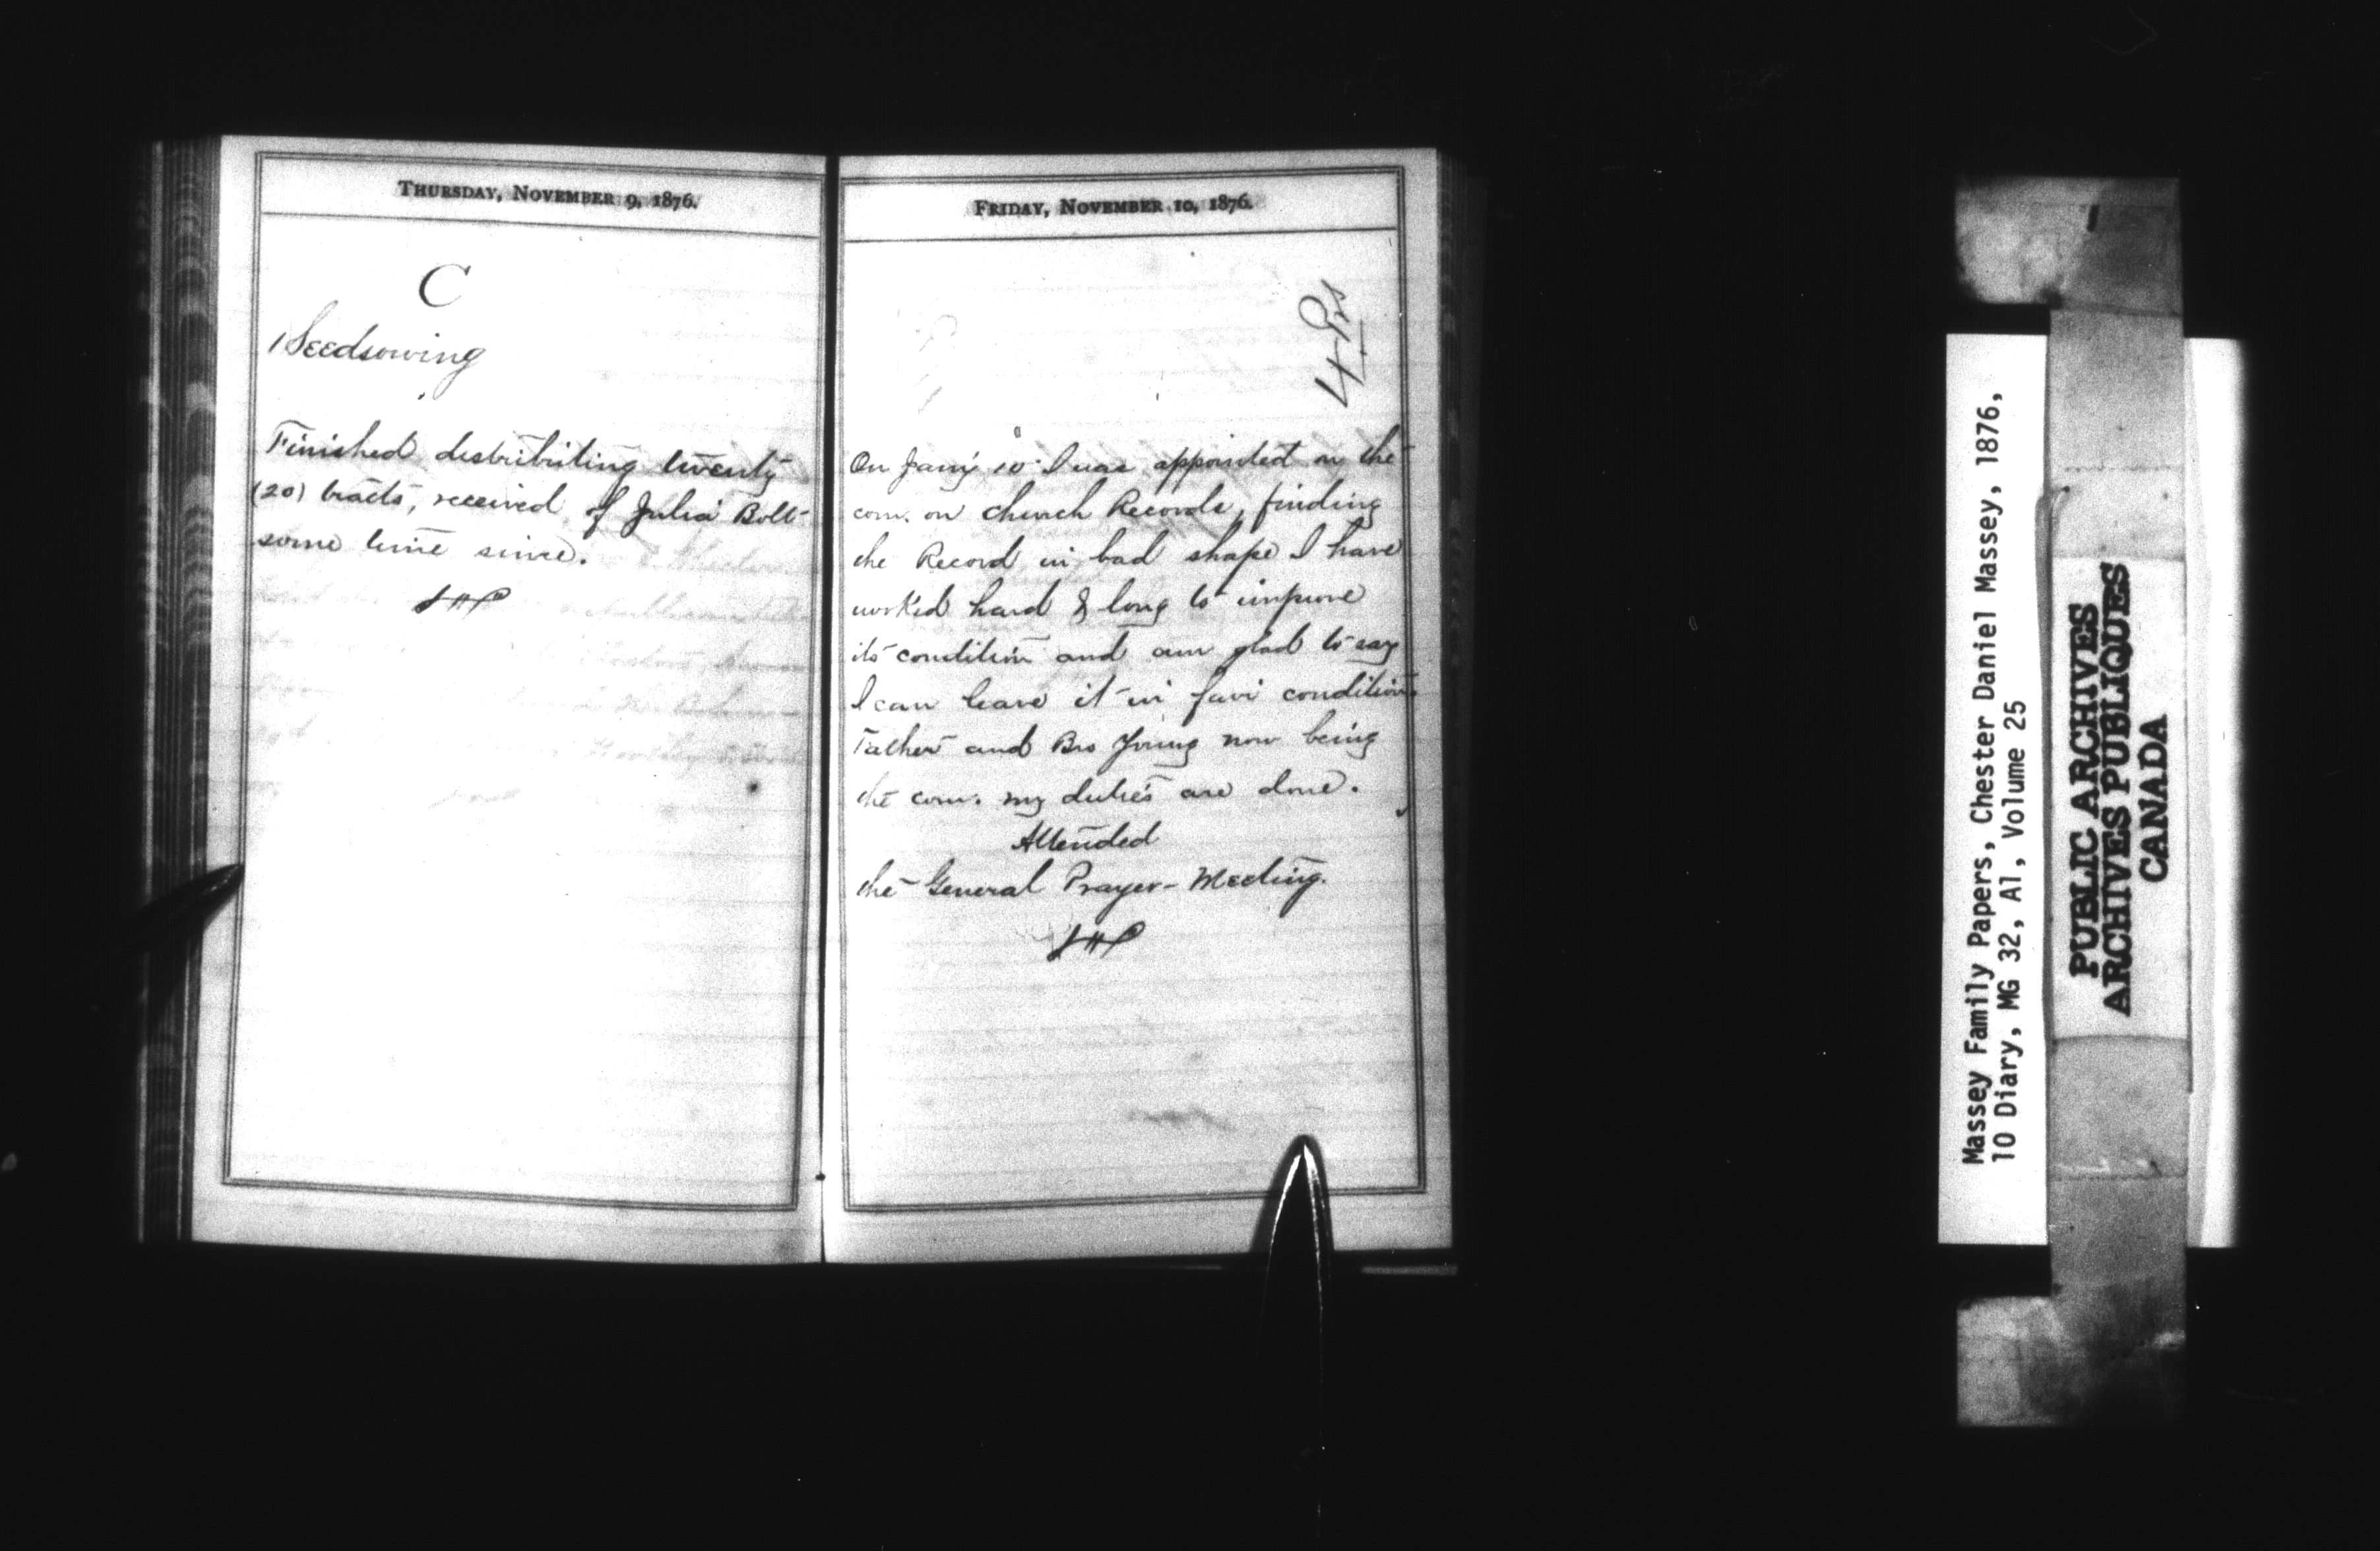 THURSDAY, NOVEMBER 9, 1876.
C
Seedsowing
Finished destributing twenty
(20) tracts, received of Julia Bolt
some time since.
FRIDAY, NOVEMBER 10, 1876.
4 Prs
On Jany 10 I was appointed on the
com. on church Records, finding
the Record in bad shape I have
worked hard & long to improve
its condition and am glad to say
I can leave it in fair condition
Father and Bro Young now being
the com. my duties are done.
Attended
the General Prayer-Meeting.
Massey Family Papers, Chester Daniel Massey, 1876,
10 Diary, MG 32, A1, Volume 25
PUBLIC ARCHIVES
ARCHIVES PUBLIQUES
CANADA